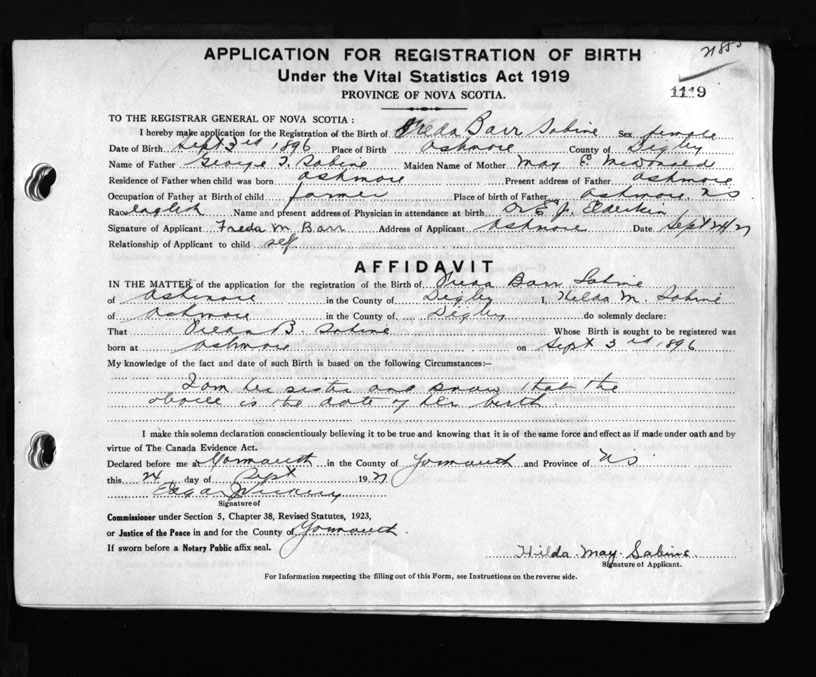 APPLICATION FOR REGISTRATION OF BIRTH
Under the Vital Statistics Act 1919
PROVINCE OF NOVA SCOTIA.
1119
TO THE REGISTRAR GENERAL OF NOVA SCOTIA :
I hereby make application for the Registration of the Birth of Freda Barr Sabine Sex female
Date of Birth Sept 3rd, 1896 Place of Birth Ashmore County of Digby
Name of Father George Sabine Maiden Name of Mother May E. McDonald
Residence of Father when child was born Ashmore Present address of Father Ashmore
Occupation of Father at Birth of child farmer Place of birth of Father Ashmore NS
Race english Name and present address of Physician in attendance at birth Elderkin
Signature of Applicant Freda M. Barr Address of Applicant Ashmore Date Sept 24/27
Relationship of Applicant to child self
AFFIDAVIT
IN THE MATTER of the application for the registration of the Birth of Freda Barr Sabine
of Ashmore in the County of Digby I, Hilda M. Sabine
of Ashmore in the County of Digby do solemnly declare:
That Freda B. Sabine Whose Birth is sought to be registered was
born at Ashmore on Sept 3rd, 1896
My knowledge of the fact and date of such Birth is based on the following Circumstances:—
I am her sister and know that the
above is the date of her birth.
I make this solemn declaration conscientiously believing it to be true and knowing that it is of the same force and effect as if made under oath and by
virtue of The Canada Evidence Act.
Declared before me at Yarmouth in the County of Yarmouth and Province of NS
this 24 day of Sept 1927
Edgar
Signature of
Commissioner under Section 5, Chapter 38, Revised Statutes, 1923,
or Justice of the Peace in and for the County of Yarmouth.
If sworn before a Notary Public affix seal.
Hilda May Sabine
Signature of Applicant.
For Information respecting the filling out of this Form, see Instructions on the reverse side.